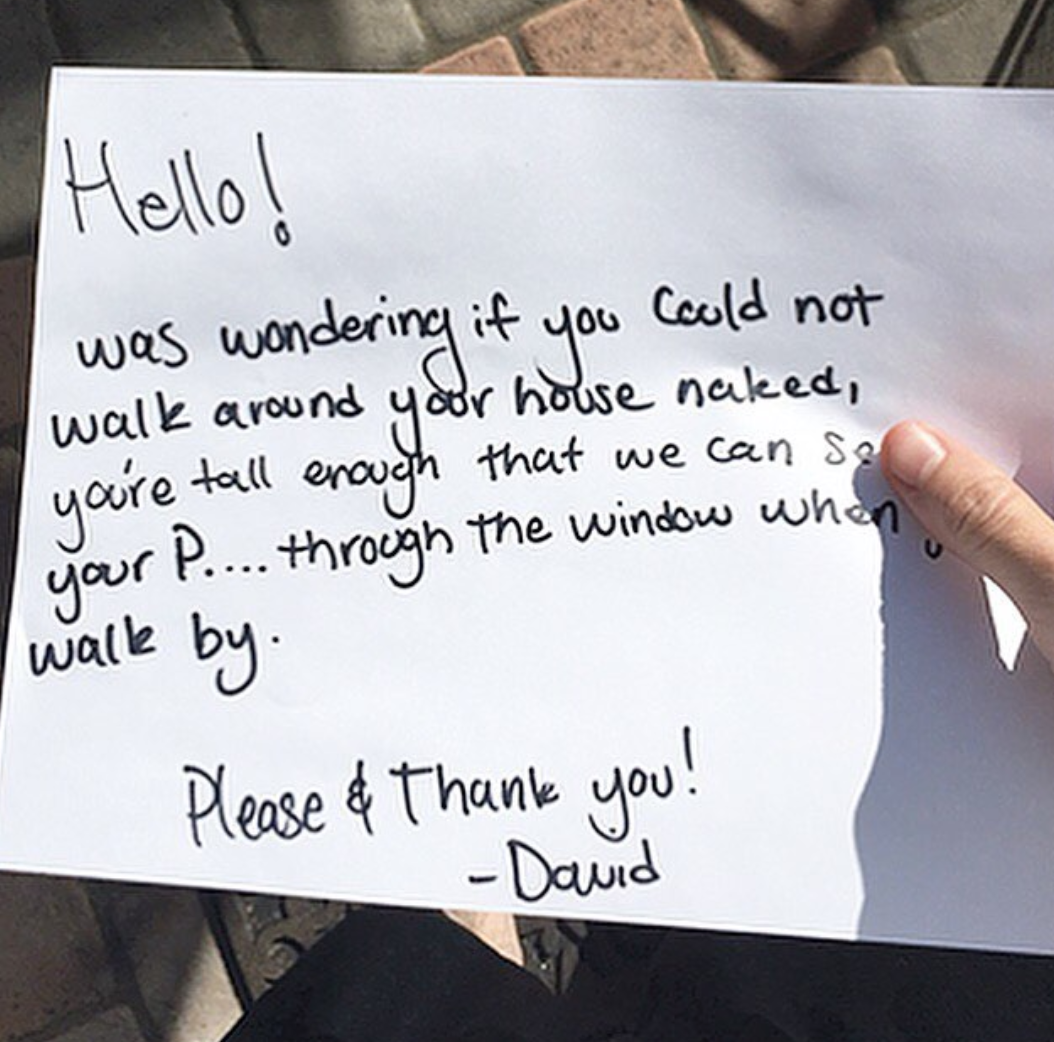 Hello!
was wondering if you could not
walk around your house naked,
you're tall enough that we can
your P.... through the window when
walk by.
Please & Thank you!
- David